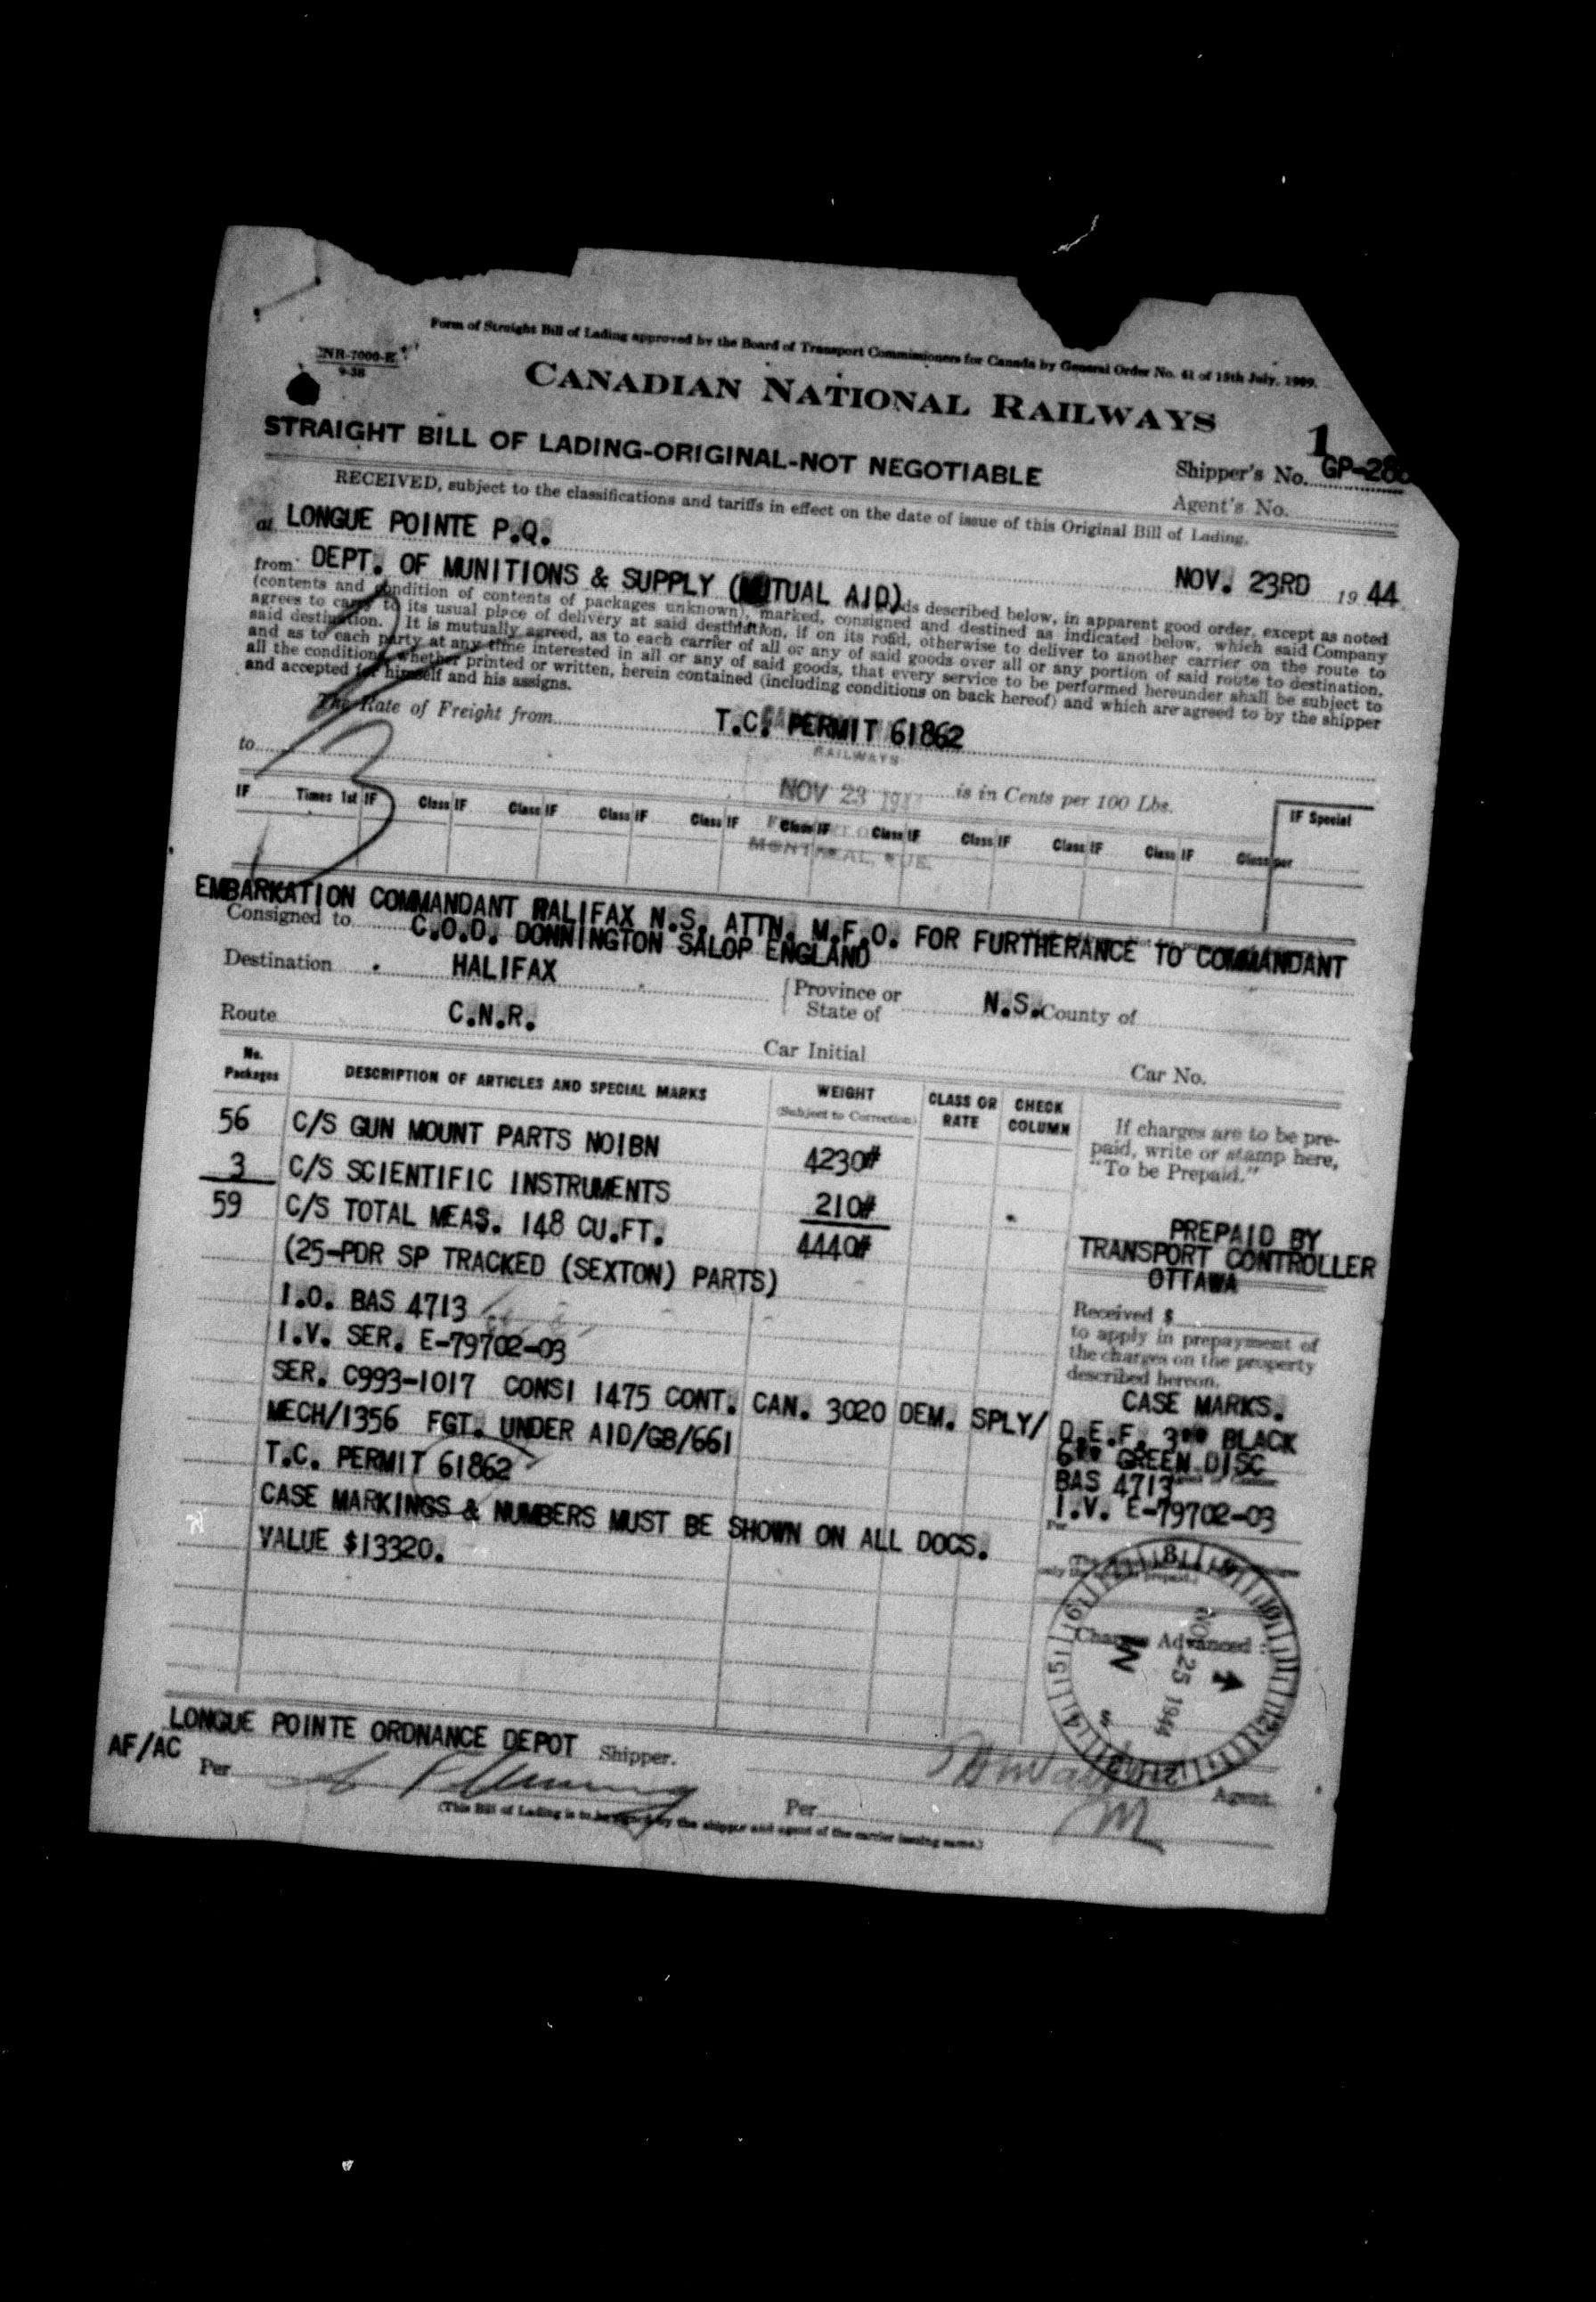 Form of Straight Bill of Lading approved by the Board of Transport Commissioners for Canada by General Order No. 61 of 15th July, 1909.
NR-7000-E
9-38
CANADIAN NATIONAL RAILWAYS
STRAIGHT BILL OF LADING-ORIGINAL-NOT NEGOTIABLE
1
Shipper's No. GP-28
Agent's No.
RECEIVED, subject to the classifications and tariffs in effect on the date of issue of this Original Bill of Lading,
at LONGUE POINTE P.Q.
NOV. 23RD 19 44
from DEPT. OF MUNITIONS & SUPPLY (MUTUAL AID) described below, in apparent good order, except as noted
(contents and condition of contents of packages unknown), marked, consigned and destined as indicated below, which said Company
agrees to carry to its usual place of delivery at said destination, if on its road, otherwise to deliver to another carrier on the route to
said destination. It is mutually agreed, as to each carrier of all or any of said goods over all or any portion of said route to destination,
and as to each party at any time interested in all or any of said goods, that every service to be performed hereunder shall be subject to
all the conditions, whether printed or written, herein contained (including conditions on back hereof) and which are agreed to by the shipper
and accepted for himself and his assigns.
The Rate of Freight from
T.C. PERMIT 61862
RAILWAYS
to
NOV 23
is in Cents per 100 Lbs.
IF Times 1st IF Class IF Class IF Class IF Class IF Class IF Class IF Class IF Class IF Class IF Class per IF Special
MONTREAL, QUE.
EMBARKATION COMMANDANT HALIFAX N.S. ATTN. M.F.O. FOR FURTHERANCE TO COMMANDANT
Consigned to C.O.D. DONNINGTON SALOP ENGLAND
Destination HALIFAX Province or State of N.S. County of
Route C.N.R. Car Initial Car No.
No. Packages DESCRIPTION OF ARTICLES AND SPECIAL MARKS WEIGHT (Subject to Correction) CLASS OR RATE CHECK COLUMN
56 C/S GUN MOUNT PARTS NOIBN 4230#
3 C/S SCIENTIFIC INSTRUMENTS 210#
59 C/S TOTAL MEAS. 148 CU.FT. 4440#
(25-PDR SP TRACKED (SEXTON) PARTS)
I.O. BAS 4713
I.V. SER. E-79702-03
SER. C993-1017 CONSI 1475 CONT. CAN. 3020 DEM. SPLY/
MECH/1356 FGT. UNDER AID/GB/661
T.C. PERMIT 61862
CASE MARKINGS & NUMBERS MUST BE SHOWN ON ALL DOCS.
VALUE $13320.
If charges are to be pre-
paid, write or stamp here,
"To be Prepaid."
PREPAID BY
TRANSPORT CONTROLLER
OTTAWA
Received $
to apply in prepayment of
the charges on the property
described hereon.
CASE MARKS.
D.E.F. 3"" BLACK
6"" GREEN DISC
BAS 4713
I.V. E-79702-03
Per
Charges Advanced :
$
NOV 25 1944
LONGUE POINTE ORDNANCE DEPOT Shipper.
Agent.
AF/AC
Per
Per
(This Bill of Lading is to be signed by the shipper and agent of the carrier issuing same.)